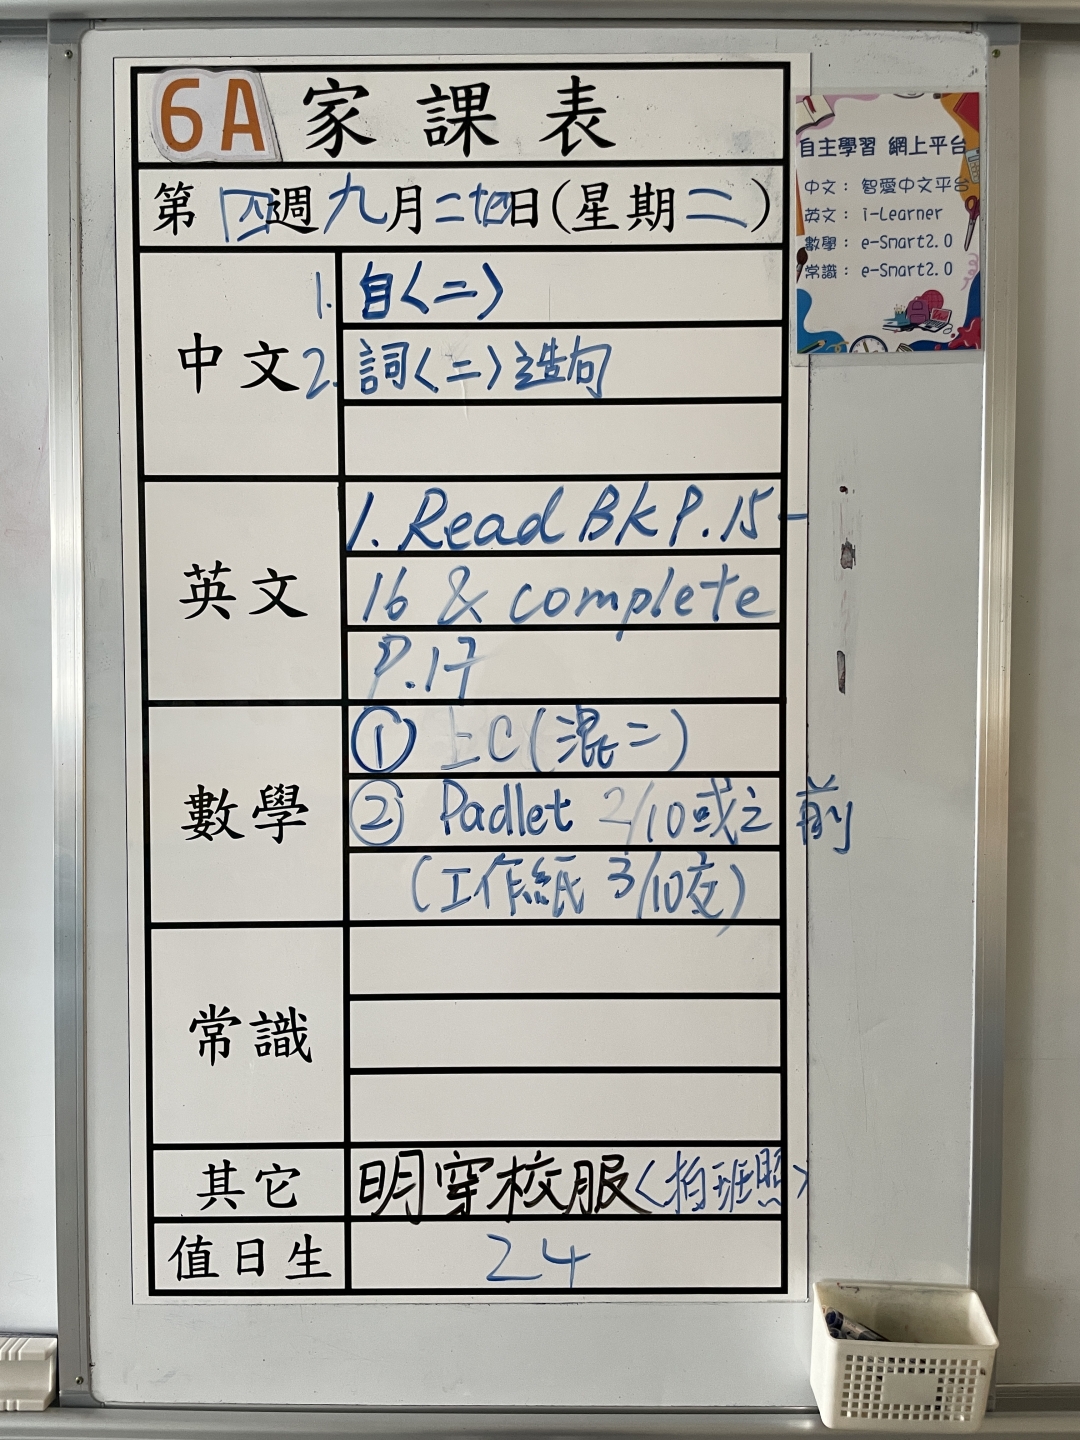 6A 家課表
第四週九月二十四日(星期二)
中文
1. 自〈二〉
2. 詞〈二〉造句
英文
1. Read BK P.15-
16 & complete
P.17
數學
① 上C(混二)
② Padlet 2/10或之前
(工作紙 3/10交)
常識
其它
明穿校服〈拍班照〉
值日生
24
自主學習 網上平台
中文： 智愛中文平台
英文： i-Learner
數學： e-Smart2.0
常識： e-Smart2.0